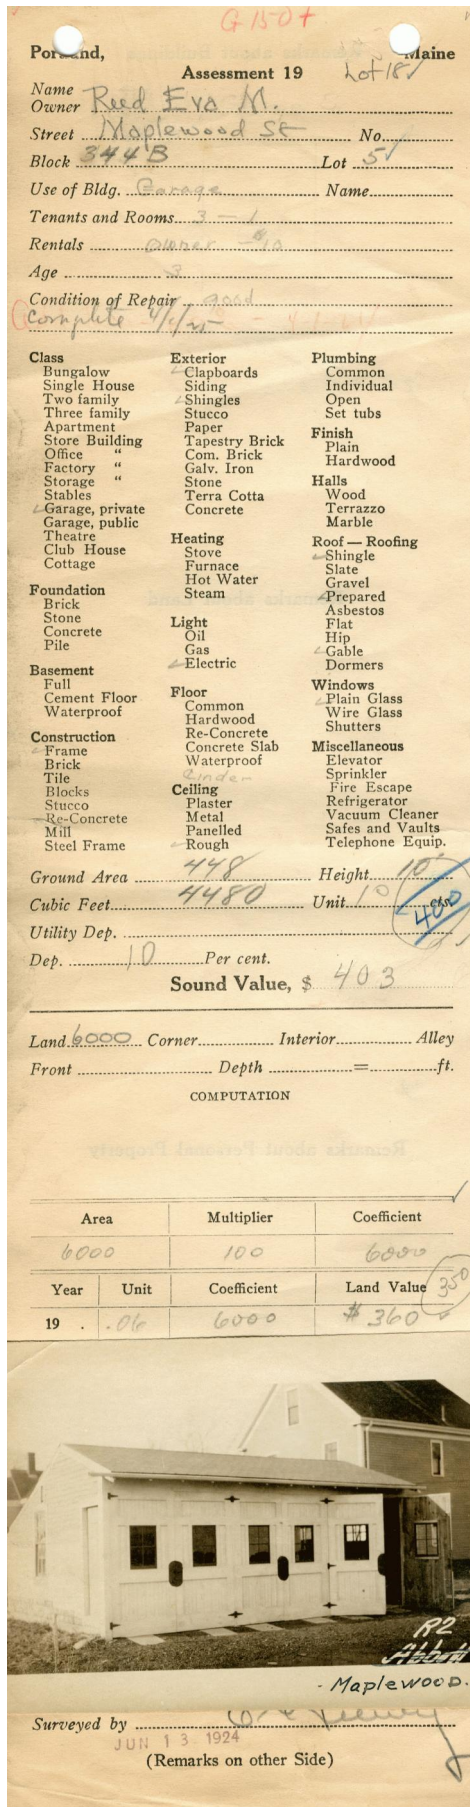 G 150+
Portland, Maine
Assessment 19 Lot 18 ✓
Name
Owner Reed Eva M.
Street Maplewood St No.
Block 344 B Lot 5 ✓
Use of Bldg. Garage Name
Tenants and Rooms 3 — 1
Rentals owner — $10
Age 3
Condition of Repair good
Complete 4/1/25
Class
Bungalow
Single House
Two family
Three family
Apartment
Store Building
Office "
Factory "
Storage "
Stables
✓ Garage, private
Garage, public
Theatre
Club House
Cottage
Foundation
Brick
Stone
Concrete
Pile
Basement
Full
Cement Floor
Waterproof
Construction
✓ Frame
Brick
Tile
Blocks
Stucco
Re-Concrete
Mill
Steel Frame
Exterior
✓ Clapboards
Siding
✓ Shingles
Stucco
Paper
Tapestry Brick
Com. Brick
Galv. Iron
Stone
Terra Cotta
Concrete
Heating
Stove
Furnace
Hot Water
Steam
Light
Oil
Gas
✓ Electric
Floor
Common
Hardwood
Re-Concrete
Concrete Slab
Waterproof
Cinder
Ceiling
Plaster
Metal
Panelled
✓ Rough
Plumbing
Common
Individual
Open
Set tubs
Finish
Plain
Hardwood
Halls
Wood
Terrazzo
Marble
Roof — Roofing
✓ Shingle
Slate
Gravel
✓ Prepared
Asbestos
Flat
Hip
✓ Gable
Dormers
Windows
✓ Plain Glass
Wire Glass
Shutters
Miscellaneous
Elevator
Sprinkler
Fire Escape
Refrigerator
Vacuum Cleaner
Safes and Vaults
Telephone Equip.
Ground Area 448 Height 10'
Cubic Feet 4480 Unit 10 400
Utility Dep.
Dep. 10 Per cent.
Sound Value, $ 403
Land 6000 Corner Interior Alley
Front Depth = ft.
COMPUTATION
Remarks about Personal Property
Area Multiplier Coefficient
6000 100 6000
Year Unit Coefficient Land Value 350
19 . .06 6000 $ 360
R2
- Maplewood.
Surveyed by
JUN 13 1924
(Remarks on other Side)